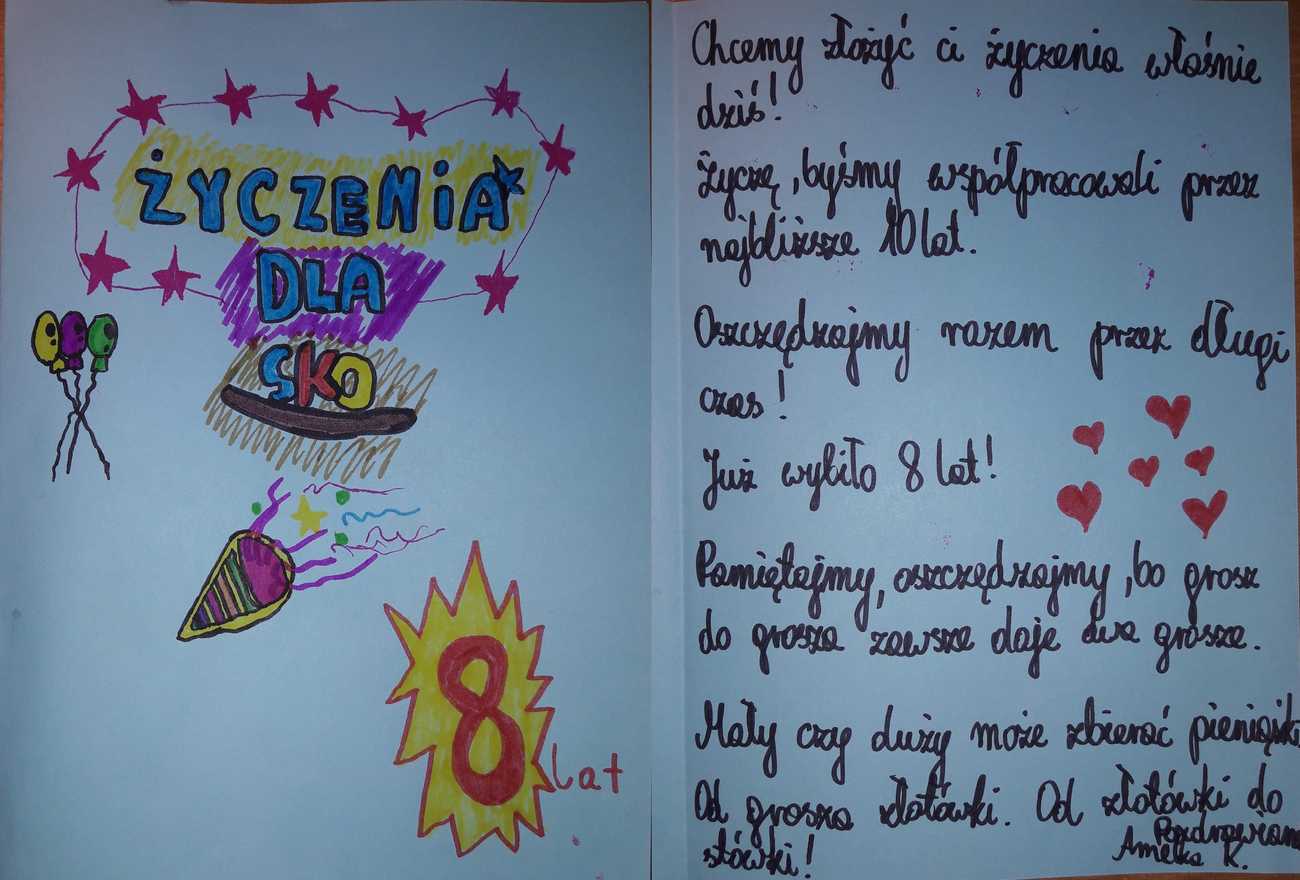 ŻYCZENiA
DLA
SKO
8
lat
Chcemy złożyć ci życzenia właśnie
dziś!
Życzę, byśmy współpracowali przez
najbliższe 10 lat.
Oszczędzajmy razem przez długi
czas!
Już wybiło 8 lat!
Pamiętajmy, oszczędzajmy, bo grosz
do grosza zawsze daje dwa grosze.
Mały czy duży może zbierać pieniążki
Od grosza złotówki. Od złotówki do
stówki!
Pozdrawiam
Amelka K.